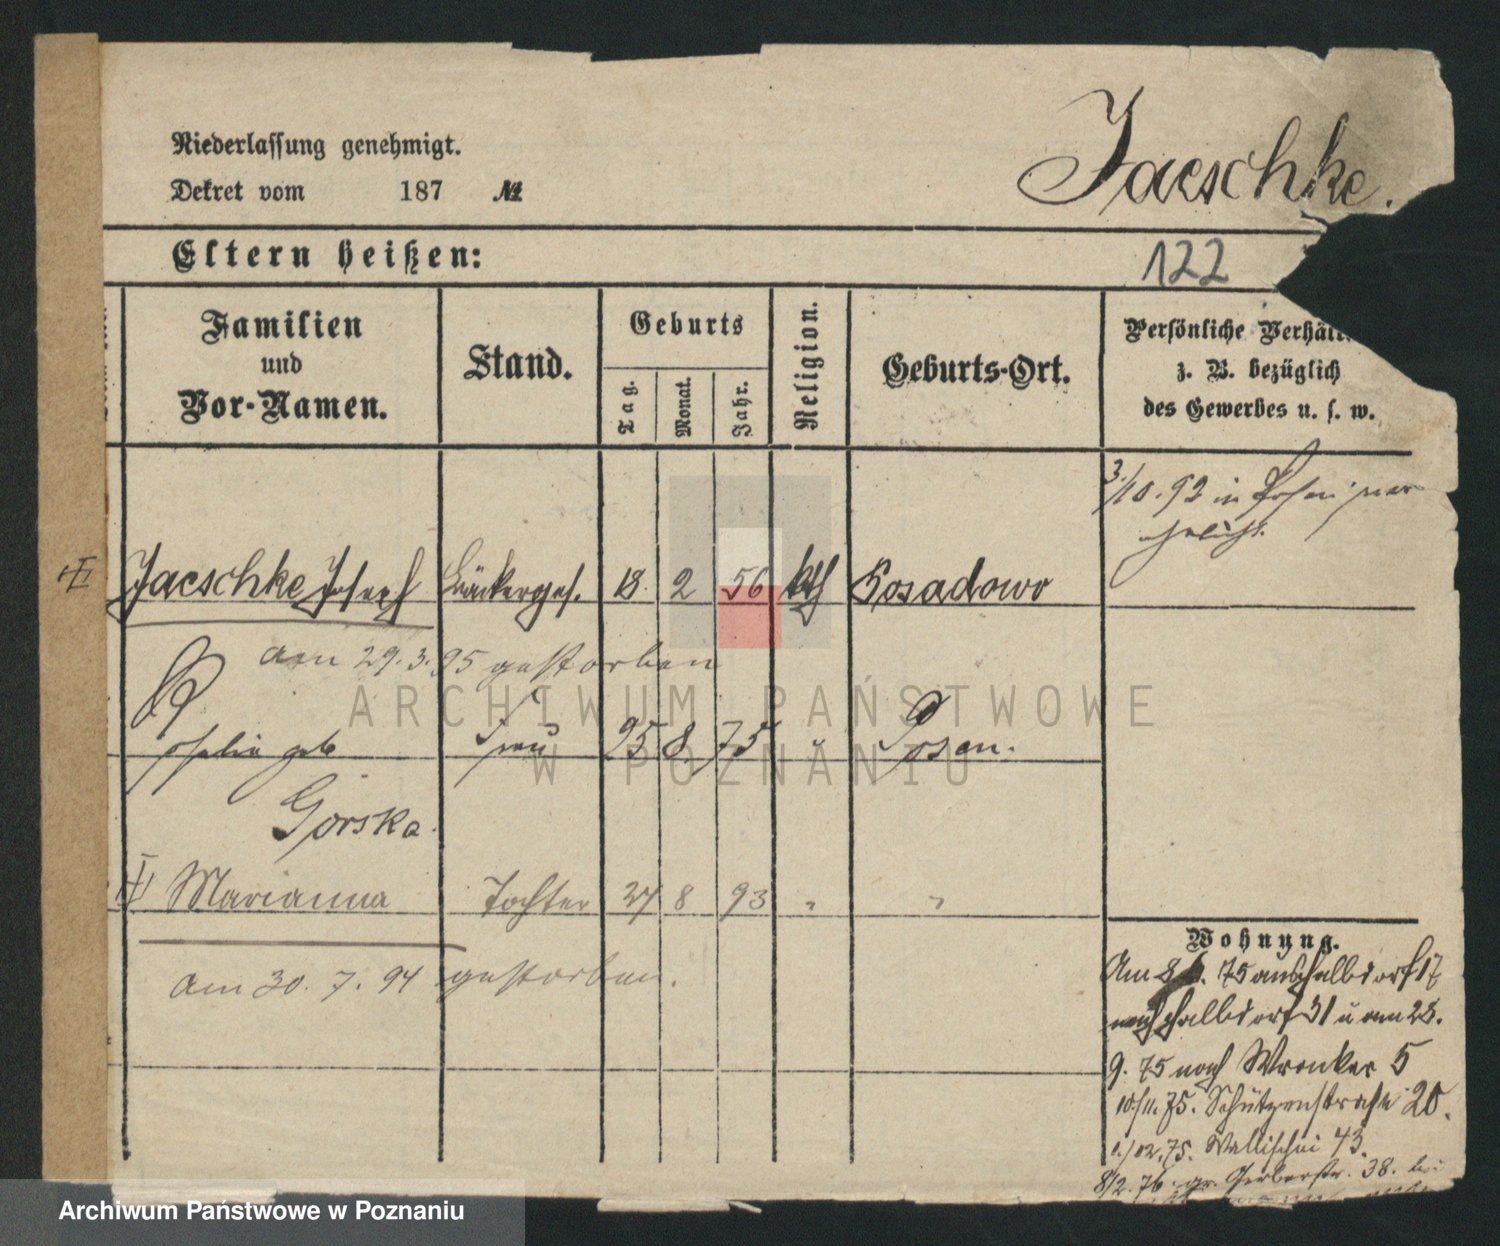 Niederlassung genehmigt.
Dekret vom 187 №
Jaeschke.
Eltern heißen:
122
Familien und Vor-Namen.
Stand.
Geburts
Tag.
Monat.
Jahr.
Religion.
Geburts-Ort.
Persönliche Verhält
z. B. bezüglich
des Gewerbes u. s. w.
3./10. 92 in Posen ver
ehelicht.
Jaeschke Josef Bäckerges. 18. 2 56 kth Posadowo
am 29. 3. 95 gestorben
Rosalie geb Frau 25 8 75 " Posen.
Górska
II Marianna Tochter 27 8 93 " "
am 30. 7. 94 gestorben.
Wohnung.
Am 8 75 aus Halbdorf 17
nach Halbdorf 31 u am 28.
9. 75 nach Wronker 5
10/11. 75. Schützenstraße 20.
75. Wallischei 43.
8/2. 76. gr. Gerberstr. 38. bei
ARCHIWUM PAŃSTWOWE
W POZNANIU
Archiwum Państwowe w Poznaniu